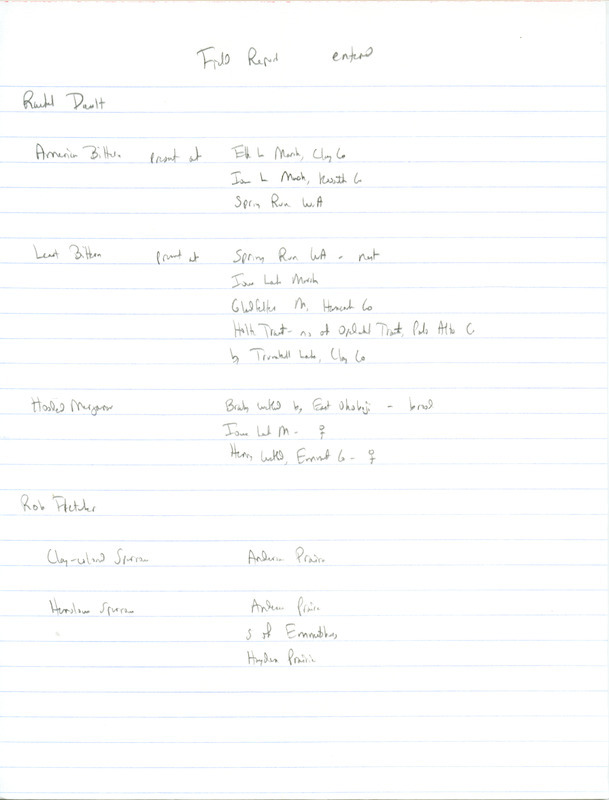 Field Report entered
Rachel
American Bittern present at Elk L Marsh, Clay Co
Iowa L Marsh, Co
Spring Run WA
Least Bittern present at Spring Run WA - nest
Iowa Lake Marsh
M, Hancock Co
Holts Tract - no of Tract, Palo Alto C
by Trumbull Lake, Clay Co
Hooded Merganser wetland by East Okoboji - brood
Iowa Lake M - ♀
wetland, Emmet Co - ♀
Rob Fletcher
Clay-colored Sparrow Anderson Prairie
Henslow Sparrow Anderson Prairie
S of Emmetsburg
Hayden Prairie